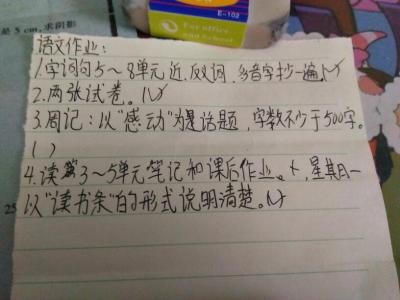 是 5 cm,求阴影
E-102
For office
and School
语文作业:
1.字词句5~8单元近、反义词、多音字抄一遍。(√)
2.两张试卷。(√)
3.周记:以“感动”为是话题,字数不少于500字。
( )
4.读第3~5单元笔记和课后作业。,星期一
以“读书条”的形式说明清楚。(√)
25